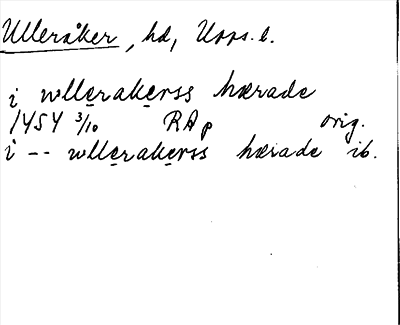 Ulleråker, hd, Upps. l.
i wllerakerss hærade
1454 3/10 RAp orig.
i -- wllerakerss hærade ib.